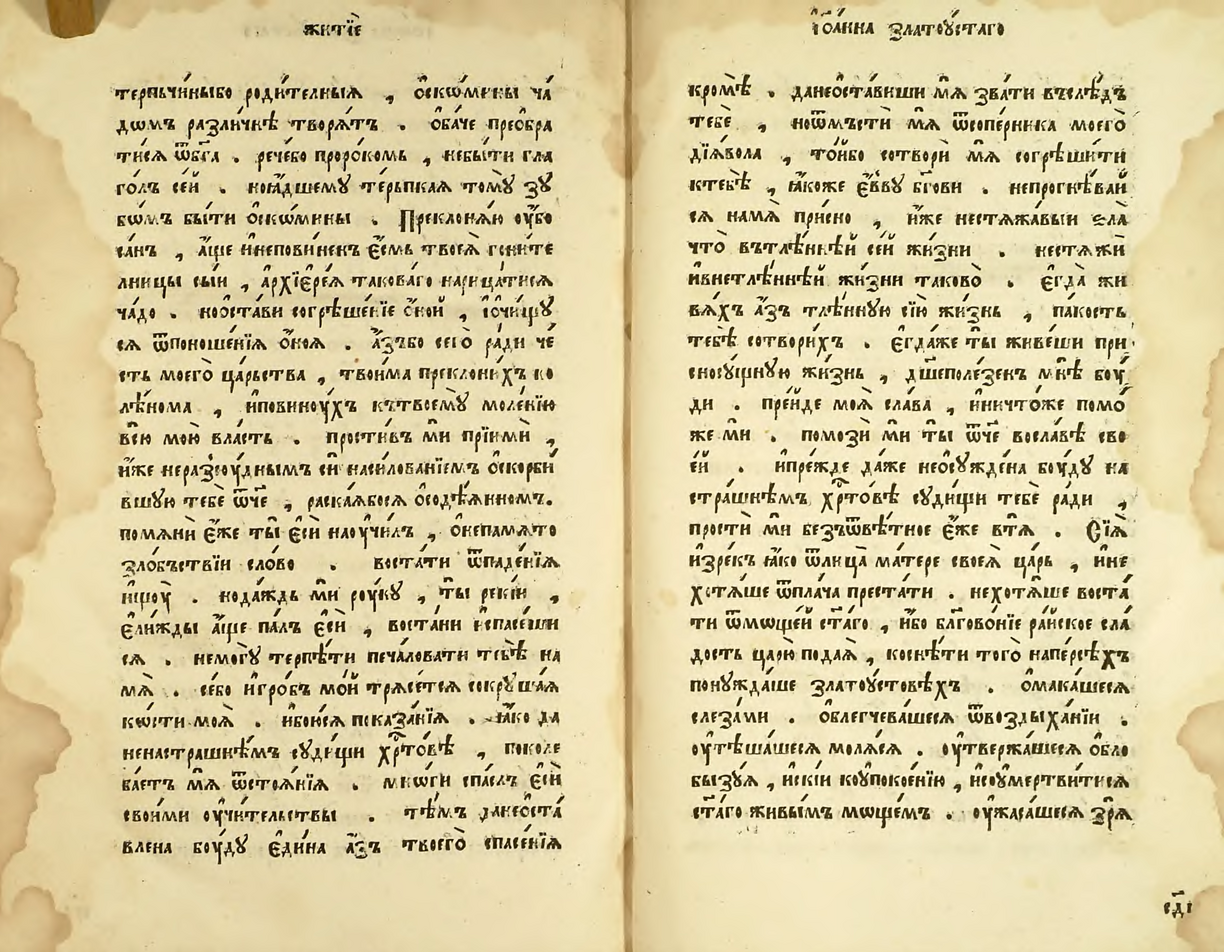 житїѐ
терпъчиныбо родителныѧ , ѻ҆скѡ́мины ча́
дѡмъ разли́чнѣ творѧ́тъ . ѻ҆ба́че преѡбра
ти́сѧ ѿбг҃а . рече́бо проро́комь , небы́ти гла
го́лъ се́й . ноꙗ҆́дшемꙋ те́рпкаѧ томꙋ̀ зꙋ
бѡ́мъ бы́ти ѻ҆скѡ́мины . Преклонѧ́ю ᲂу҆́бо
са́нъ , а҆́ще и҆неповиненъ є҆́смь твоеѧ̀ гоните
лницы сы́и , а҆рхїере́ѧ такова́го нарица́тисѧ
ча́до . ноѡста́ви согрѣше́нїе ѻ҆но́й , і҆ѡчи́щꙋ
сѧ ѿпоноше́нїѧ ѻ҆́ноѧ . а҆́зъбо сего̀ ра́ди че́
сть моего̀ ца́рьства , твои́ма преклони́хъ ко
лѣ́нома , и҆повинꙋ́хъ кътвоемꙋ̀ моле́нїю
всю̀ мою̀ вла́сть . просты́въ мѝ прїимѝ ,
и҆́же неразсꙋ́днымъ сѝ наси́лованїемъ ѻ҆скорби́
вшую тебѐ ѿче , раска́ѧбосѧ ѻ҆содѣ́ѧнномъ.
помѧнѝ є҆́же ты̀ є҆сѝ наꙋчи́лъ , ѻ҆непа́мѧто
зло́бъствїи сло́во . воста́ти ѿпаде́нїѧ
и҆щꙋ̀ . нода́ждь мѝ рꙋ́кꙋ , ты̀ рекі́й ,
є҆ли́жды а҆́ще па́лъ є҆сѝ , воста́ни и҆спасе́ши
сѧ . немогꙋ̀ терпѣ́ти печа́ловати тебѣ̀ на
мѧ̀ . се́бо и҆гро́бъ мо́й трѧсе́тсѧ сокрꙋша́ѧ
кѡ́сти моѧ̀ . и҆бою́сѧ показа́нїѧ . ꙗ҆́ко да
ненастра́шнѣмъ сꙋди́щи хр҃то́вѣ , поколе́
ба́етъ мѧ̀ ѿстоѧ́нїѧ . мнѡ́ги спа́слъ є҆сѝ
свои́ми ᲂу҆чи́тельствы . тѣ́мъ данеѡста́
влена бꙋ́дꙋ є҆ди́на а҆́зъ твоего̀ спасе́нїѧ
і҆ѡа́нна златоꙋ́стаго
кромѣ̀ . данеѡста́виши мѧ̀ зва́ти въслѣ́дъ
тебѐ , ноѿмъстѝ мѧ̀ ѿсопе́рника моего̀
дїѧ́вола , то́ибо сотворѝ мѧ̀ согрѣши́ти
ктебѣ̀ , ꙗ҆́коже є҆́ввꙋ бг҃ови . непрогнѣва́й
сѧ намѧ̀ при́сно , и҆́же нестѧжа́выи ѕла̀
что̀ вътлѣ́ннѣй се́й жи́зни . нестѧжѝ
и҆внетлѣ́ннѣй жи́зни таково̀ . є҆гда̀ жи
вѧ́хъ а҆́зъ тлѣ́ннꙋю сїю̀ жи́знь , па́кость
тебѣ̀ сотвори́хъ . є҆гда́же ты̀ живе́ши при
сносꙋ́щнꙋю жи́знь , дш҃еполе́зенъ мнѣ̀ бꙋ́
ди . пре́йде моѧ̀ сла́ва , и҆ничто́же помо́
же мѝ . помозѝ мѝ ты̀ ѿче восла́вѣ сво
е́й . и҆пре́жде да́же неѡсꙋжде́на бꙋ́дꙋ на
стра́шнѣмъ хр҃то́вѣ сꙋди́щи тебѐ ра́ди ,
простѝ мѝ безъѿвѣ́тное є҆́же втѧ̀ . Сїѧ̀
и҆зре́къ ꙗ҆́ко ѿлица̀ ма́тере своеѧ̀ ца́рь , и҆не
хотѧ́ше ѿпла́ча преста́ти . нехотѧ́ше воста́
ти ѿмѡще́й ст҃а́го , и҆́бо бл҃гово́нїе ра́йское сла́
дость царю̀ подаѧ̀ , косне́ти того̀ напе́рсѣхъ
понꙋжда́ше златоꙋ́стовѣхъ . ѡ҆мака́шесѧ
слеза́ми . ѡ҆блегчева́шесѧ ѿвоздыха́нїи .
ᲂу҆тѣша́шесѧ молѧ́сѧ . ᲂу҆твержа́шесѧ ѡ҆бло
бызꙋ́ѧ , и҆скі́и кꙋпокое́нїю , и҆соумертви́тисѧ
ст҃а́го живы́мъ моще́мъ . ᲂу҆жаса́шесѧ зрѧ̀